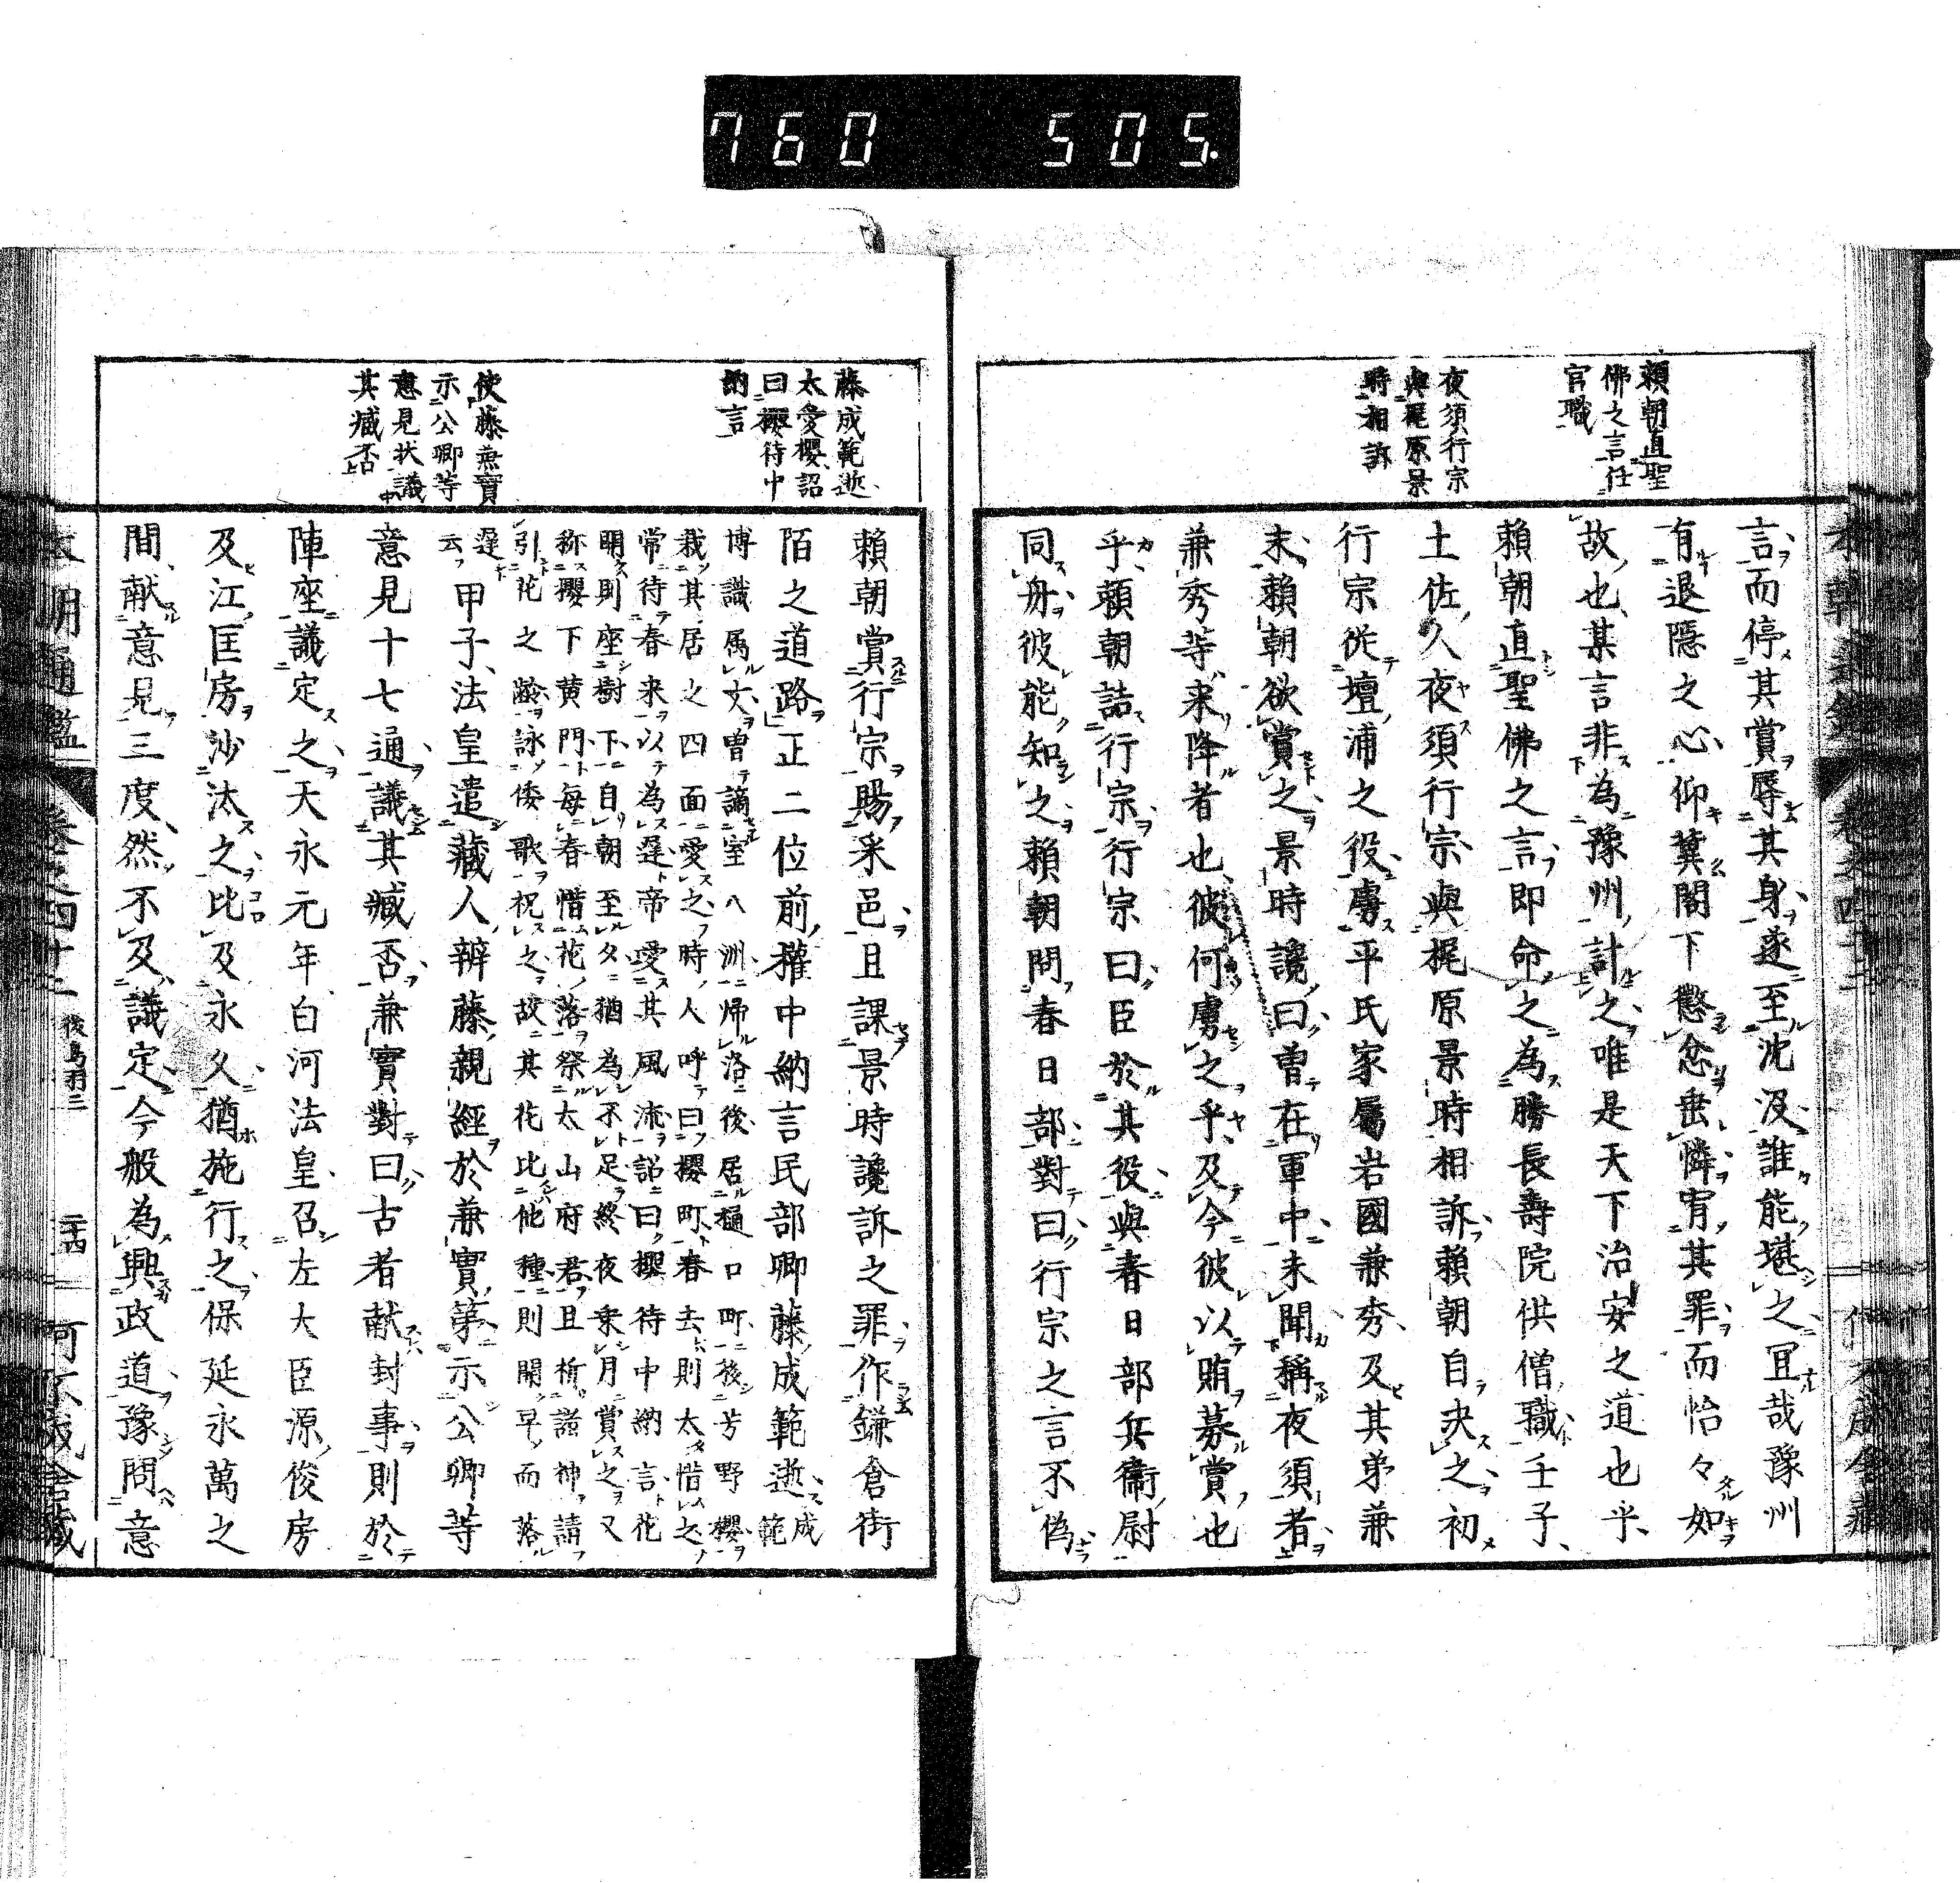 760 505.
頼朝直聖
佛之言任
官職
夜須行宗
與梶原景
時相訴
言而停其賞辱其身遂至沈沒誰能堪之冝哉豫州
有退隱之心仰冀閤下懲忿垂憐宥其罪而怡々如
故也某言非為豫州計之唯是天下治安之道也乎
頼朝直聖佛之言即命之為勝長壽院供僧職壬子
土佐人夜須行宗與梶原景時相訴頼朝自决之初
行宗從壇浦之役虜平氏家屬岩國兼秀及其弟兼
末頼朝欲賞之景時讒曰曽在軍中未聞稱夜須者
兼秀等来降者也彼何虜之乎及今彼以賄募賞也
乎頼朝詰行宗行宗曰臣於其役與春日部兵衞尉
同舟彼能知之頼朝問春日部對曰行宗之言不偽
藤成範逝
太愛櫻詔
曰櫻待中
納言
使藤兼實
示公卿等
意見状議
其臧否
頼朝賞行宗賜采邑且課景時讒訴之罪作鎌倉街
陌之道路正二位前權中納言民部卿藤成範逝成範
博識属文曽謫室八洲帰洛後居樋口町後芳野櫻
栽其居之四面愛之時人呼曰櫻町春去則太惜之
常待春来以為遅帝愛其風流詔曰櫻待中納言花
明則座樹下自朝至夕猶為不足終夜乗月賞之又
称櫻下黄門毎春惜花落祭太山府君且祈諸神請
引花之齢詠倭歌祝之故其花比他種則開早而落
遅云甲子法皇遣藏人辨藤親經於兼實第示公卿等
意見十七通議其臧否兼實對曰古者献封事則於
陣座議定之天永元年白河法皇召左大臣源俊房
及江匡房沙汰之比及永久猶施行之保延永萬之
間献意見三度然不及議定今般為興政道豫問意
本朝通鑑 卷之四十二 後鳥羽三 二十四